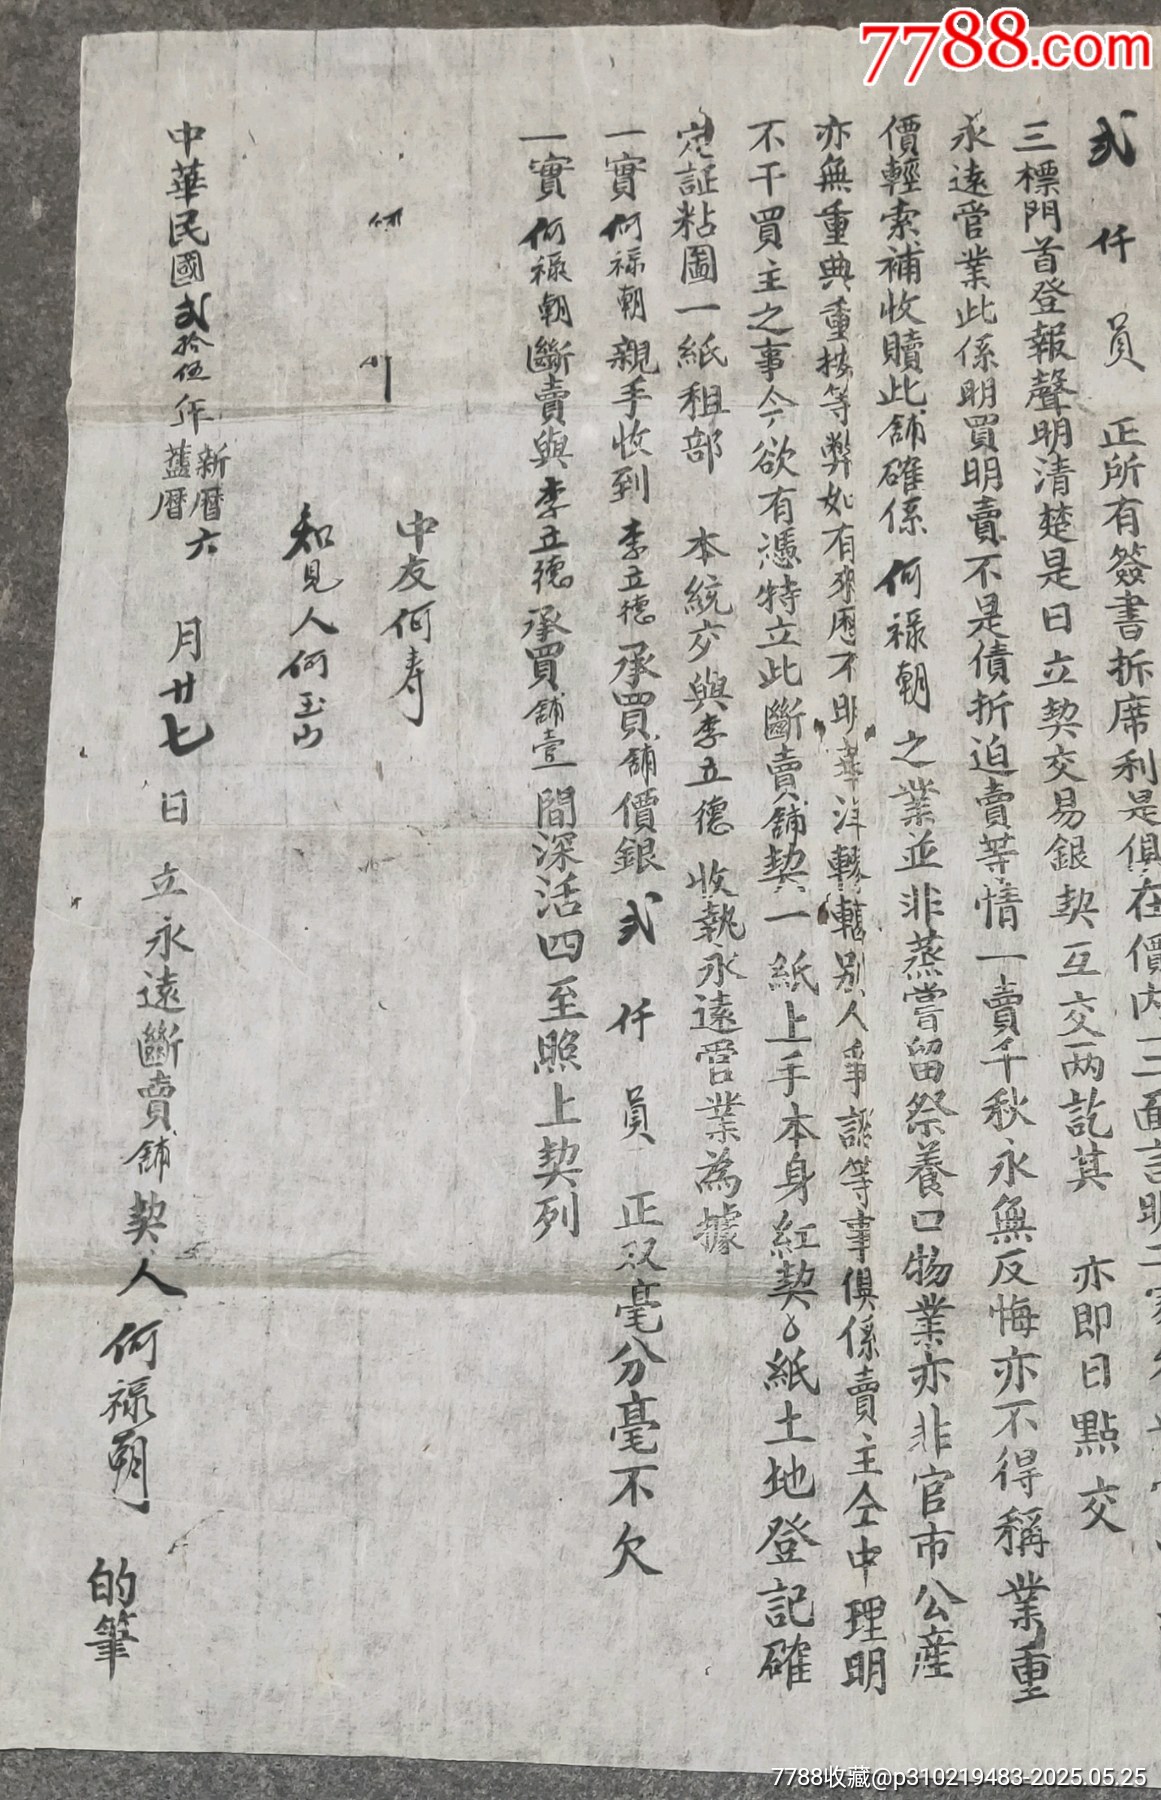 7788.com
弍仟員正所有簽書折席利是俱在價内三面言明
三標門首登報聲明清楚是日立契交易銀契互交兩訖其亦即日點交
永遠管業此係明買明賣不是債折迫賣等情一賣千秋永無反悔亦不得稱業重
價輕索補收贖此舖確係何祿朝之業並非蒸嘗留祭養口物業亦非官市公産
亦無重典重按等弊如有來歷不明轇轕別人爭認等事俱係賣主仝中理明
不干買主之事今欲有憑特立此斷賣舖契一紙上手本身紅契紙土地登記確
定証粘圖一紙租部本統交與李立德收執永遠管業為據
一實何祿朝親手收到李立德承買舖價銀弍仟員正双毫分毫不欠
一實何祿朝斷賣與李立德承買舖壹間深活四至照上契列
中友何寿
知見人何玉山
中華民國弍拾伍年新曆舊曆六月廿七日立永遠斷賣舖契人何祿朝的筆
7788收藏@p310219483-2025.05.25